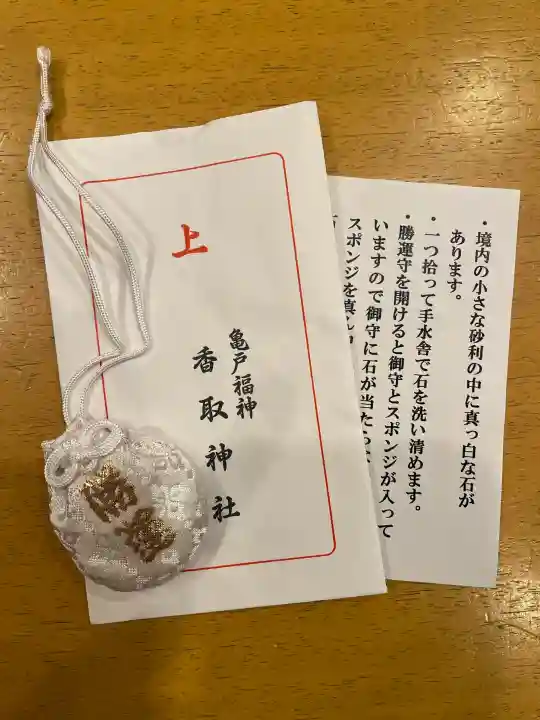 上
亀戸福神
香取神社
勝運
・境内の小さな砂利の中に真っ白な石が
あります。
・一つ拾って手水舎で石を洗い清めます。
・勝運守を開けると御守とスポンジが入って
いますので御守に石が当たらな
スポンジを真ん中